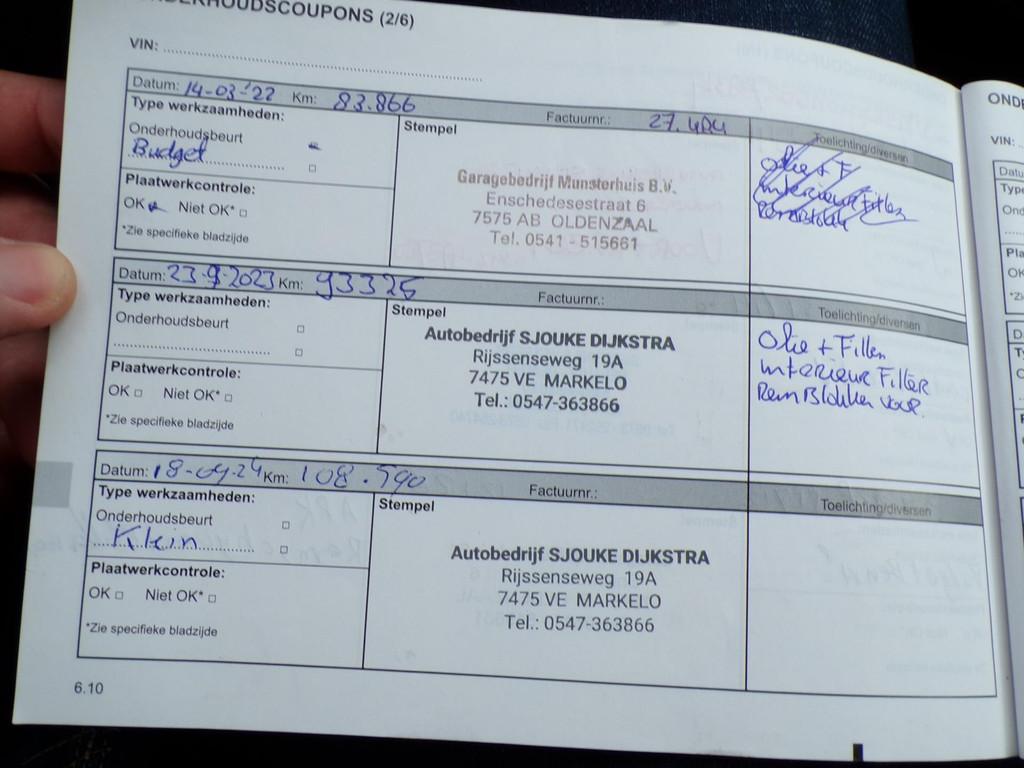 ONDERHOUDSCOUPONS (2/6)
VIN:
Datum: 14-03-'22 Km: 83.866 Factuurnr.: 27.404
Type werkzaamheden:
Onderhoudsbeurt
Budget
Plaatwerkcontrole:
OK Niet OK*
*Zie specifieke bladzijde
Stempel
Garagebedrijf Munsterhuis B.V.
Enschedesestraat 6
7575 AB OLDENZAAL
Tel. 0541 - 515661
Toelichting/diversen
olie + F
interieur Filter
RemBlokken
Datum: 23-9-2023 Km: 93325 Factuurnr.:
Type werkzaamheden:
Onderhoudsbeurt
Plaatwerkcontrole:
OK Niet OK*
*Zie specifieke bladzijde
Stempel
Autobedrijf SJOUKE DIJKSTRA
Rijssenseweg 19A
7475 VE MARKELO
Tel.: 0547-363866
Toelichting/diversen
Olie + Filter
interieur Filter
RemBlokken voor
Datum: 18-04-24 Km: 108.590 Factuurnr.:
Type werkzaamheden:
Onderhoudsbeurt
Klein
Plaatwerkcontrole:
OK Niet OK*
*Zie specifieke bladzijde
Stempel
Autobedrijf SJOUKE DIJKSTRA
Rijssenseweg 19A
7475 VE MARKELO
Tel.: 0547-363866
Toelichting/diversen
6.10
VIN: